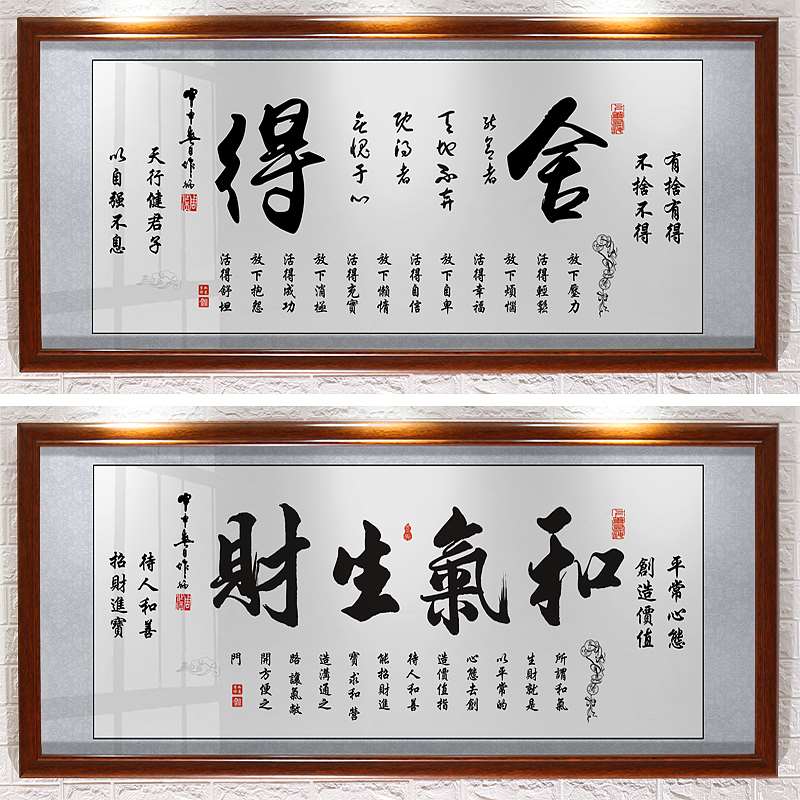 有捨有得
不捨不得
舍得
能舍者
天地不弃
既得者
无愧于心
放下壓力
活得輕鬆
放下煩惱
活得幸福
放下自卑
活得自信
放下懒惰
活得充實
放下消極
活得成功
放下抱怨
活得舒坦
天行健君子
以自强不息
平常心態
創造價值
和氣生財
所謂和氣
生財就是
以平常的
心態去創
造價值指
待人和善
能招財進
寶求和營
造溝通之
路讓氣敞
開方便之
門
待人和善
招財進寶